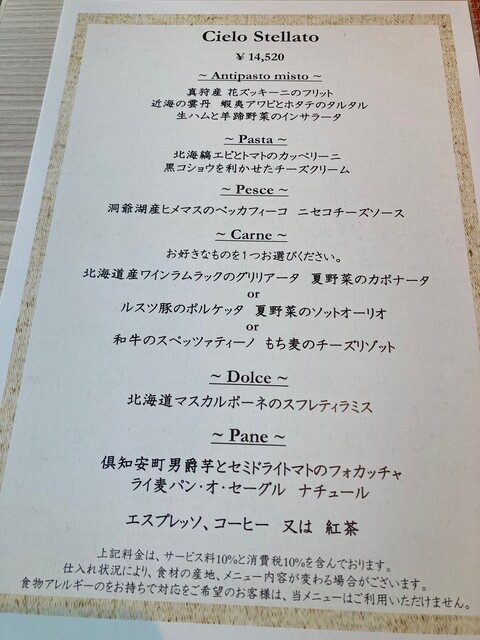 Cielo Stellato
¥ 14,520
~ Antipasto misto ~
真狩産 花ズッキーニのフリット
近海の雲丹 蝦夷アワビとホタテのタルタル
生ハムと羊蹄野菜のインサラータ
~ Pasta ~
北海縞エビとトマトのカッペリーニ
黒コショウを利かせたチーズクリーム
~ Pesce ~
洞爺湖産ヒメマスのベッカフィーコ ニセコチーズソース
~ Carne ~
お好きなものを1つお選びください。
北海道産ワインラムラックのグリリアータ 夏野菜のカポナータ
or
ルスツ豚のポルケッタ 夏野菜のソットオーリオ
or
和牛のスペッツァティーノ もち麦のチーズリゾット
~ Dolce ~
北海道マスカルポーネのスフレティラミス
~ Pane ~
倶知安町男爵芋とセミドライトマトのフォカッチャ
ライ麦パン・オ・セーグル ナチュール
エスプレッソ、コーヒー 又は 紅茶
上記料金は、サービス料10%と消費税10%を含んでおります。
仕入れ状況により、食材の産地、メニュー内容が変わる場合がございます。
食物アレルギーのをお持ちで対応をご希望のお客様は、当メニューはご利用いただけません。